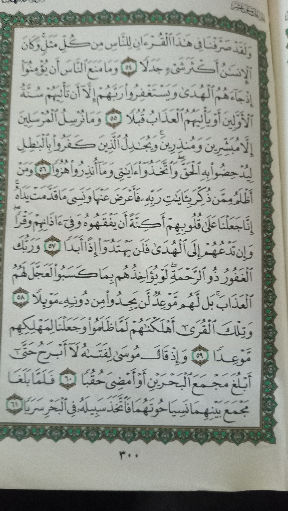 وَلَقَدْ صَرَّفْنَا فِي هَٰذَا ٱلْقُرْءَانِ لِلنَّاسِ مِن كُلِّ مَثَلٍ وَكَانَ
ٱلْإِنسَٰنُ أَكْثَرَ شَىْءٍ جَدَلًا ٥٤ وَمَا مَنَعَ ٱلنَّاسَ أَن يُؤْمِنُوٓا۟
إِذْ جَآءَهُمُ ٱلْهُدَىٰ وَيَسْتَغْفِرُوا۟ رَبَّهُمْ إِلَّآ أَن تَأْتِيَهُمْ سُنَّةُ
ٱلْأَوَّلِينَ أَوْ يَأْتِيَهُمُ ٱلْعَذَابُ قُبُلًا ٥٥ وَمَا نُرْسِلُ ٱلْمُرْسَلِينَ
إِلَّا مُبَشِّرِينَ وَمُنذِرِينَ وَيُجَٰدِلُ ٱلَّذِينَ كَفَرُوا۟ بِٱلْبَٰطِلِ
لِيُدْحِضُوا۟ بِهِ ٱلْحَقَّ وَٱتَّخَذُوٓا۟ ءَايَٰتِى وَمَآ أُنذِرُوا۟ هُزُوًا ٥٦ وَمَنْ
أَظْلَمُ مِمَّن ذُكِّرَ بِـَٔايَٰتِ رَبِّهِۦ فَأَعْرَضَ عَنْهَا وَنَسِىَ مَا قَدَّمَتْ يَدَاهُ
إِنَّا جَعَلْنَا عَلَىٰ قُلُوبِهِمْ أَكِنَّةً أَن يَفْقَهُوهُ وَفِىٓ ءَاذَانِهِمْ وَقْرًا
وَإِن تَدْعُهُمْ إِلَى ٱلْهُدَىٰ فَلَن يَهْتَدُوٓا۟ إِذًا أَبَدًا ٥٧ وَرَبُّكَ
ٱلْغَفُورُ ذُو ٱلرَّحْمَةِ لَوْ يُؤَاخِذُهُم بِمَا كَسَبُوا۟ لَعَجَّلَ لَهُمُ
ٱلْعَذَابَ بَل لَّهُم مَّوْعِدٌ لَّن يَجِدُوا۟ مِن دُونِهِۦ مَوْئِلًا ٥٨
وَتِلْكَ ٱلْقُرَىٰٓ أَهْلَكْنَٰهُمْ لَمَّا ظَلَمُوا۟ وَجَعَلْنَا لِمَهْلِكِهِم
مَّوْعِدًا ٥٩ وَإِذْ قَالَ مُوسَىٰ لِفَتَىٰهُ لَآ أَبْرَحُ حَتَّىٰٓ
أَبْلُغَ مَجْمَعَ ٱلْبَحْرَيْنِ أَوْ أَمْضِىَ حُقُبًا ٦٠ فَلَمَّا بَلَغَا
مَجْمَعَ بَيْنِهِمَا نَسِيَا حُوتَهُمَا فَٱتَّخَذَ سَبِيلَهُۥ فِى ٱلْبَحْرِ سَرَبًا ٦١
٣٠٠